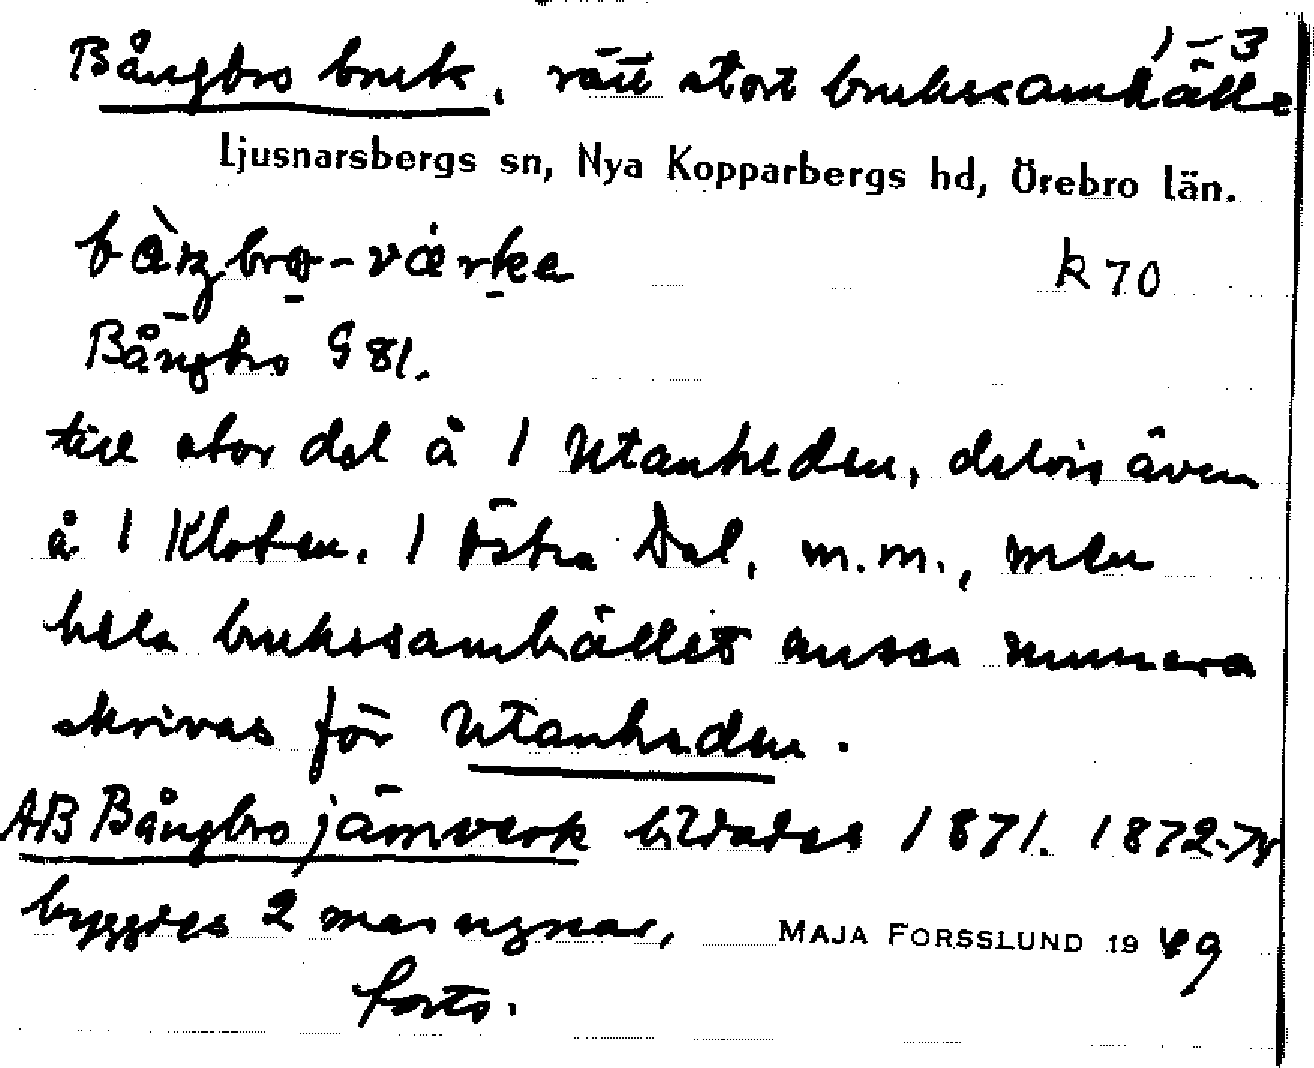 1-3
Bångbro bruk, rätt stort brukssamhälle
Ljusnarsbergs sn, Nya Kopparbergs hd, Örebro län.
bàŋbro-värke k 70
Bångbro G 81.
till stor del å 1 Utanheden, delvis även
å 1 Kloten. 1 Östra Dal, m.m., men
hela brukssamhället anses numera
skrivas för Utanheden.
AB Bångbro järnverk bildades 1871. 1872-74
byggdes 2 masugnar, MAJA FORSSLUND 19 49
forts.